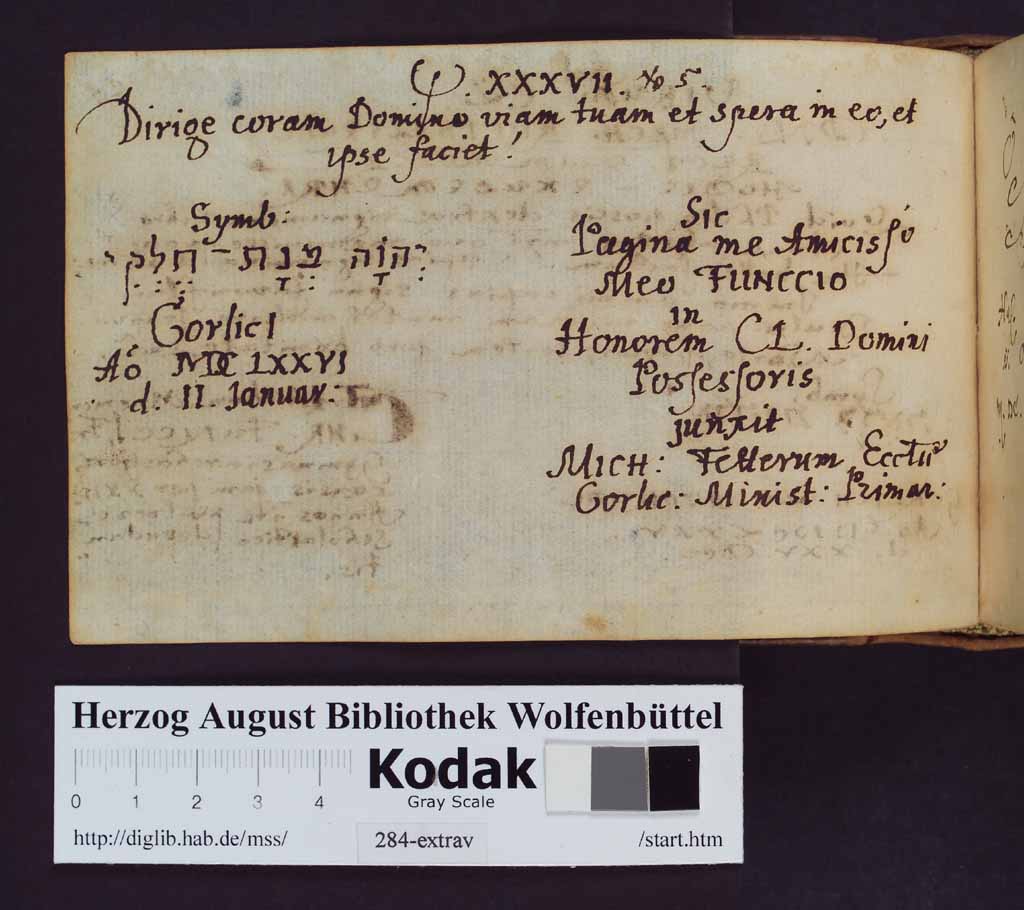 Ψ. XXXVII. V 5.
Dirige coram Domino viam tuam et spera in eo, et
ipse faciet!
Symb:
יְהוָֹה מְנָת־חֶלְקִי
Gorlici
Aō MDCLXXVI
d. II. Januar:
Sic
Pagina me Amicissō
Meo FUNCCIO
in
Honorem CL. Domini
Possessoris
junxit
MICH: Tellerum
Gorlic: Minist: Primar:
Herzog August Bibliothek Wolfenbüttel
0 1 2 3 4
Kodak
Gray Scale
http://diglib.hab.de/mss/ 284-extrav /start.htm